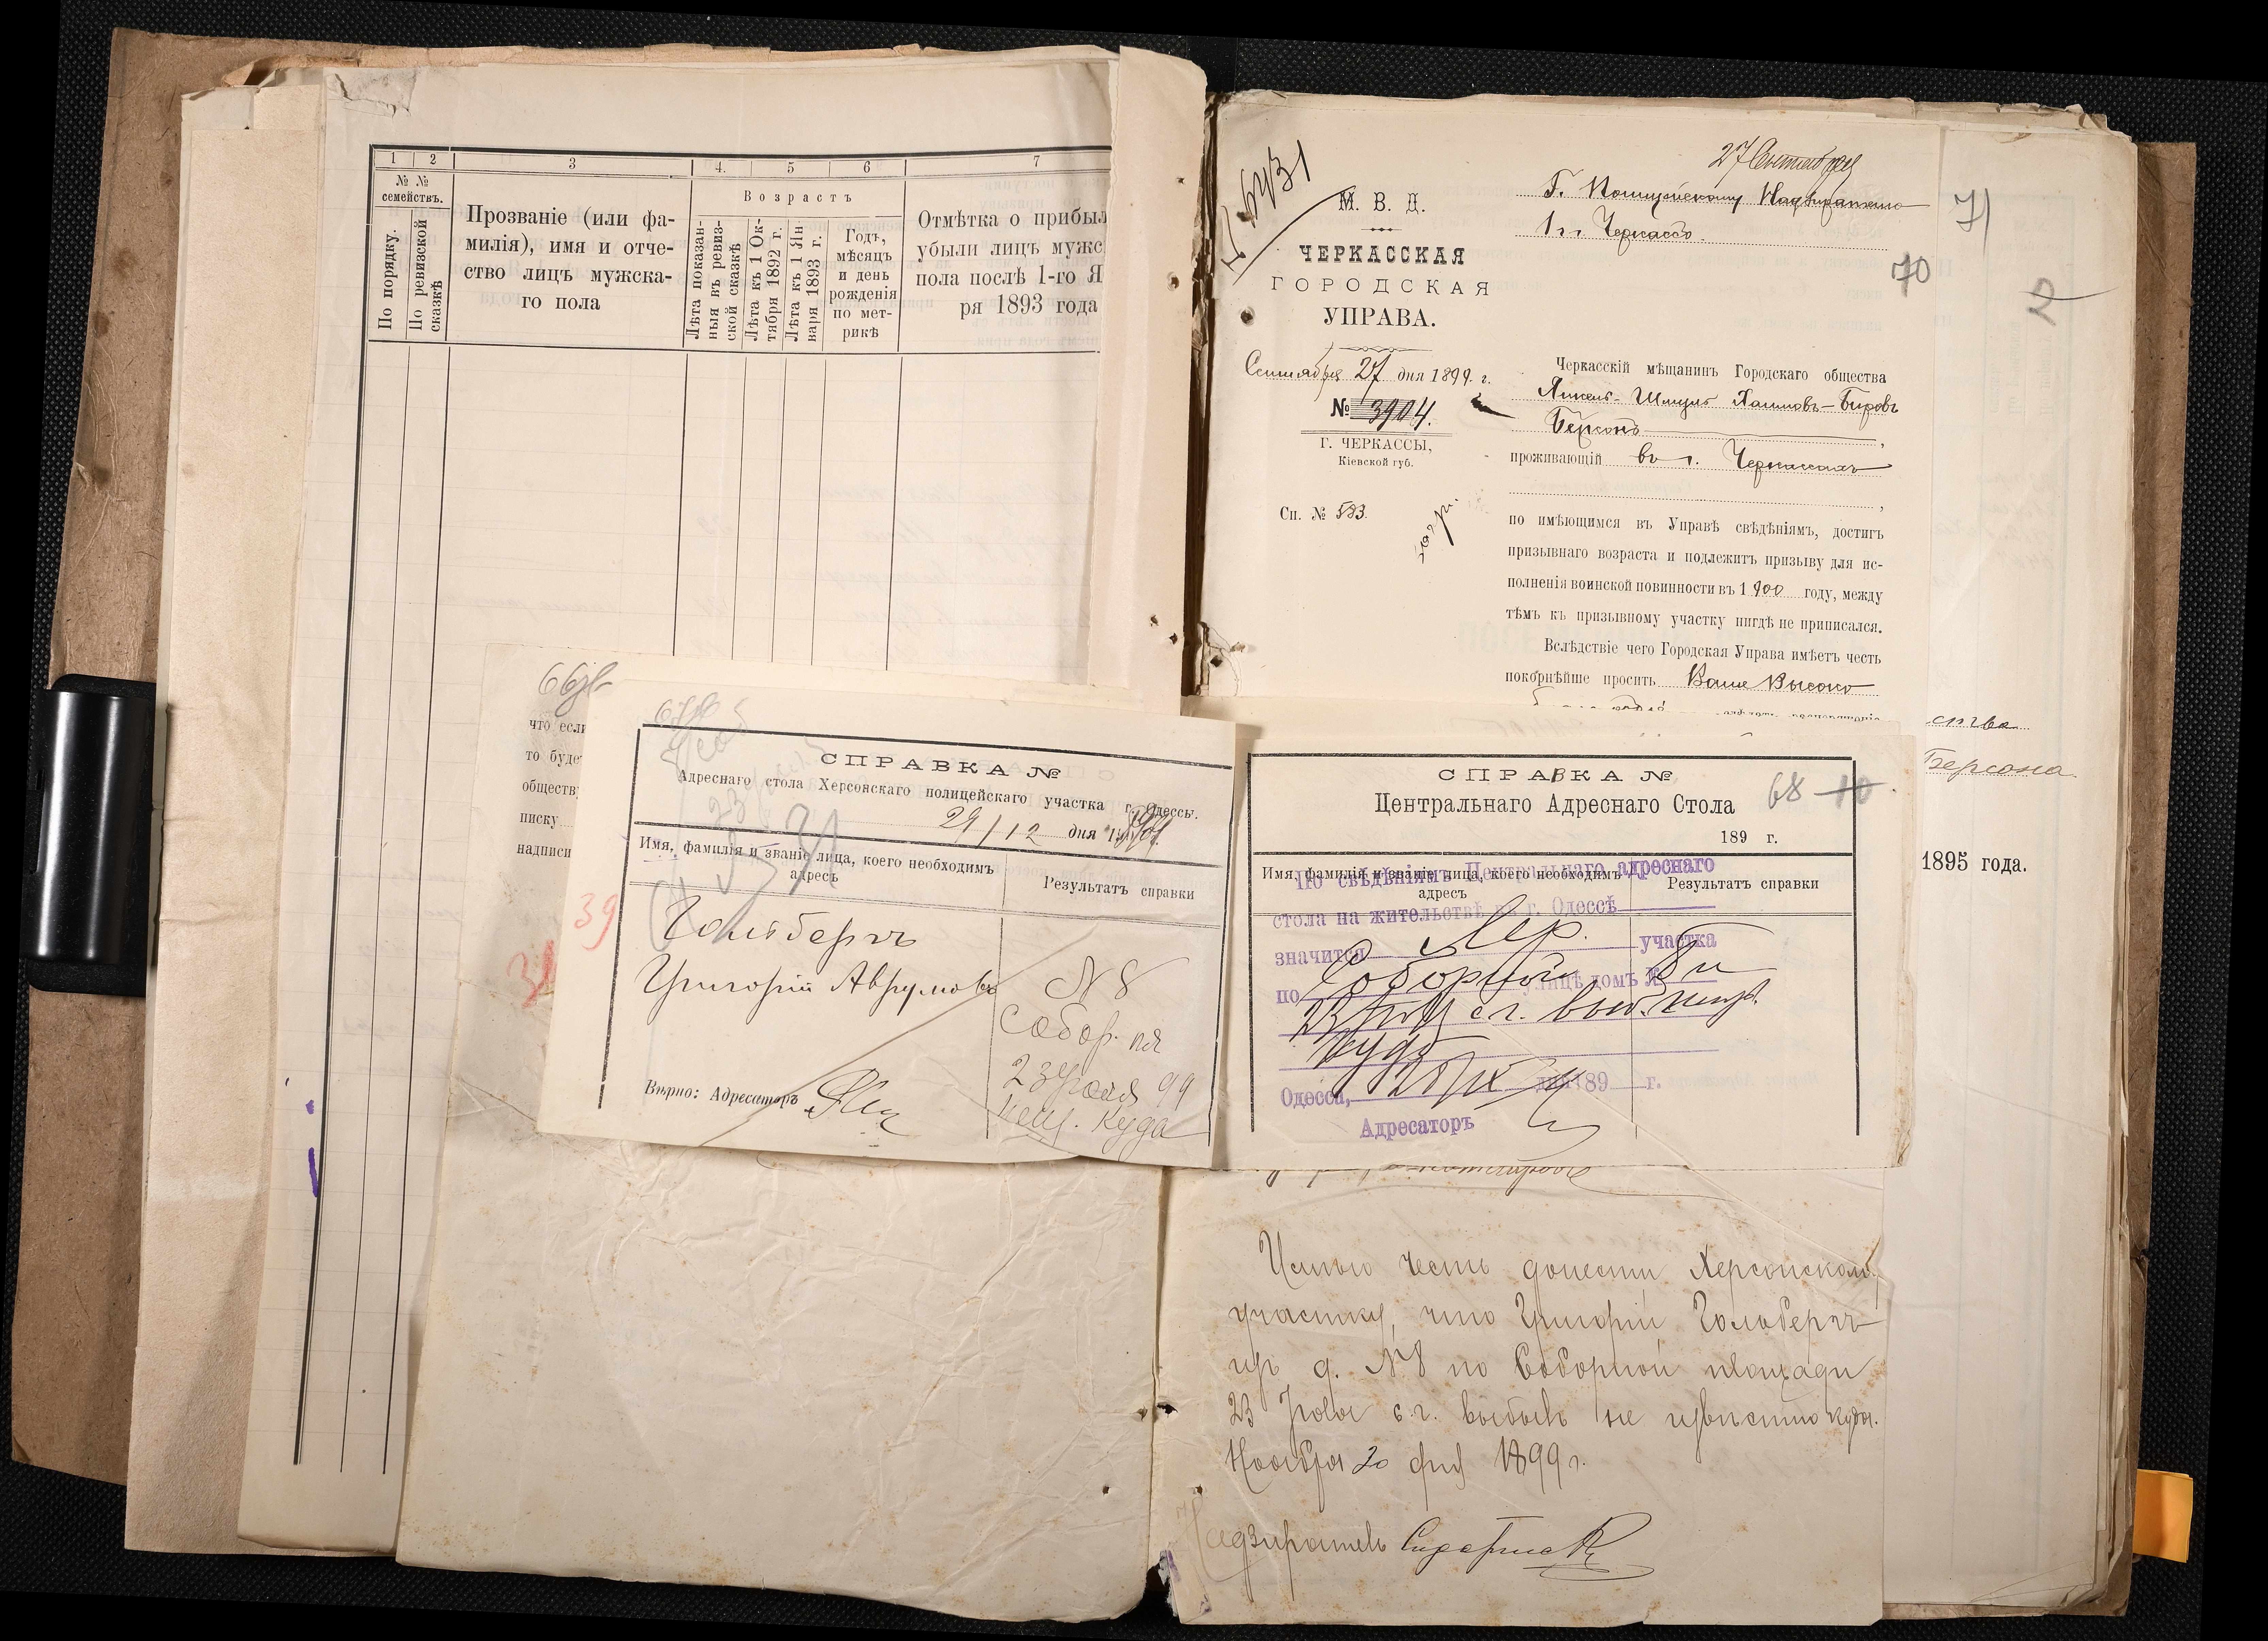 1 2 3 4. 5 6 7
№ №
семействъ.
По порядку.
По ревизской
сказкѣ
Прозваніе (или фа-
милія), имя и отче-
ство лицъ мужска-
го пола
Возрастъ
Лѣта показан-
ныя въ ревиз-
ской сказкѣ
Лѣта къ 1 Ок-
тября 1892 г.
Лѣта къ 1 Ян-
варя 1893 г.
Годъ,
мѣсяцъ
и день
рожденія
по мет-
рикѣ
Отмѣтка о прибыл
убыли лицъ мужс
пола послѣ 1-го Я
ря 1893 года
что если
то буде
обществ
писку
надписи
39
СПРАВКА №
Адреснаго стола Херсонскаго полицейскаго участка г. Одессы.
29/12 дня
Имя, фамилія и званіе лица, коего необходимъ
адресъ
Результатъ справки
Гольдбергъ
Григорій Аврумовъ
N 8
Собор. пл
23 Іюля 99
неиз. куда
Вѣрно: Адресаторъ
27 Сентября
Г. Полицейскому Надзирателю
1 ч. г. Черкассъ.
М. В. Д.
ЧЕРКАССКАЯ
ГОРОДСКАЯ
УПРАВА.
Сентября 27 дня 1899. г.
№ 3904.
Г. ЧЕРКАССЫ,
Кіевской губ.
Сп. № 583.
70
71
2
Черкасскій мѣщанинъ Городскаго общества
Янкель-Шмуль Хаимовъ-Беровъ
Берсонъ,
проживающій въ г. Черкассахъ
,
по имѣющимся въ Управѣ свѣдѣніямъ, достигъ
призывнаго возраста и подлежитъ призыву для ис-
полненія воинской повинности въ 1900 году, между
тѣмъ къ призывному участку нигдѣ не приписался.
Вслѣдствіе чего Городская Управа имѣетъ честь
покорнѣйше просить Ваше Высоко
ства
Берсона
1895 года.
СПРАВКА №
Центральнаго Адреснаго Стола
68 10
189 г.
Имя, фамилія и званіе лица, коего необходимъ
адресъ
Результатъ справки
По свѣдѣніямъ Центральнаго адреснаго
стола на жительствѣ въ г. Одессѣ
значится Хер. участка
по Соборной улицѣ домъ № 8
23 Іюля с г. выб. неиз.
куда
Одесса, дня 189 г.
Адресаторъ
Имѣю честь донести Херсонскому
участку, что Григорій Гольдбергъ
изъ д. N 8 по Соборной площади
23 Іюля с. г. выбылъ не извѣстно куда.
Ноября 20 дня 1899 г.
Надзиратель